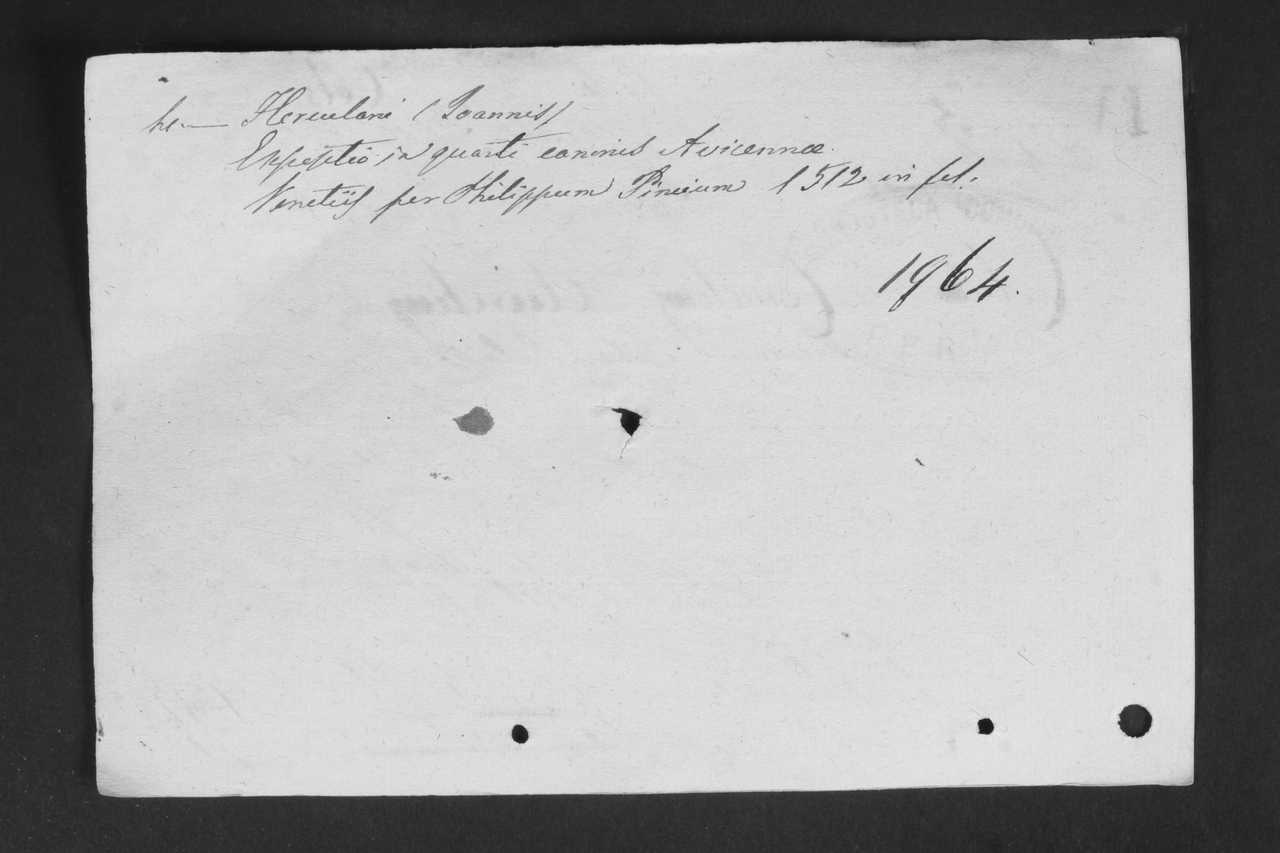 he— Herculani (Joannis)
Expositio in quarti canonis Avicennæ.
Venetiis per Philippum Pincium 1512 in fol.
1964.